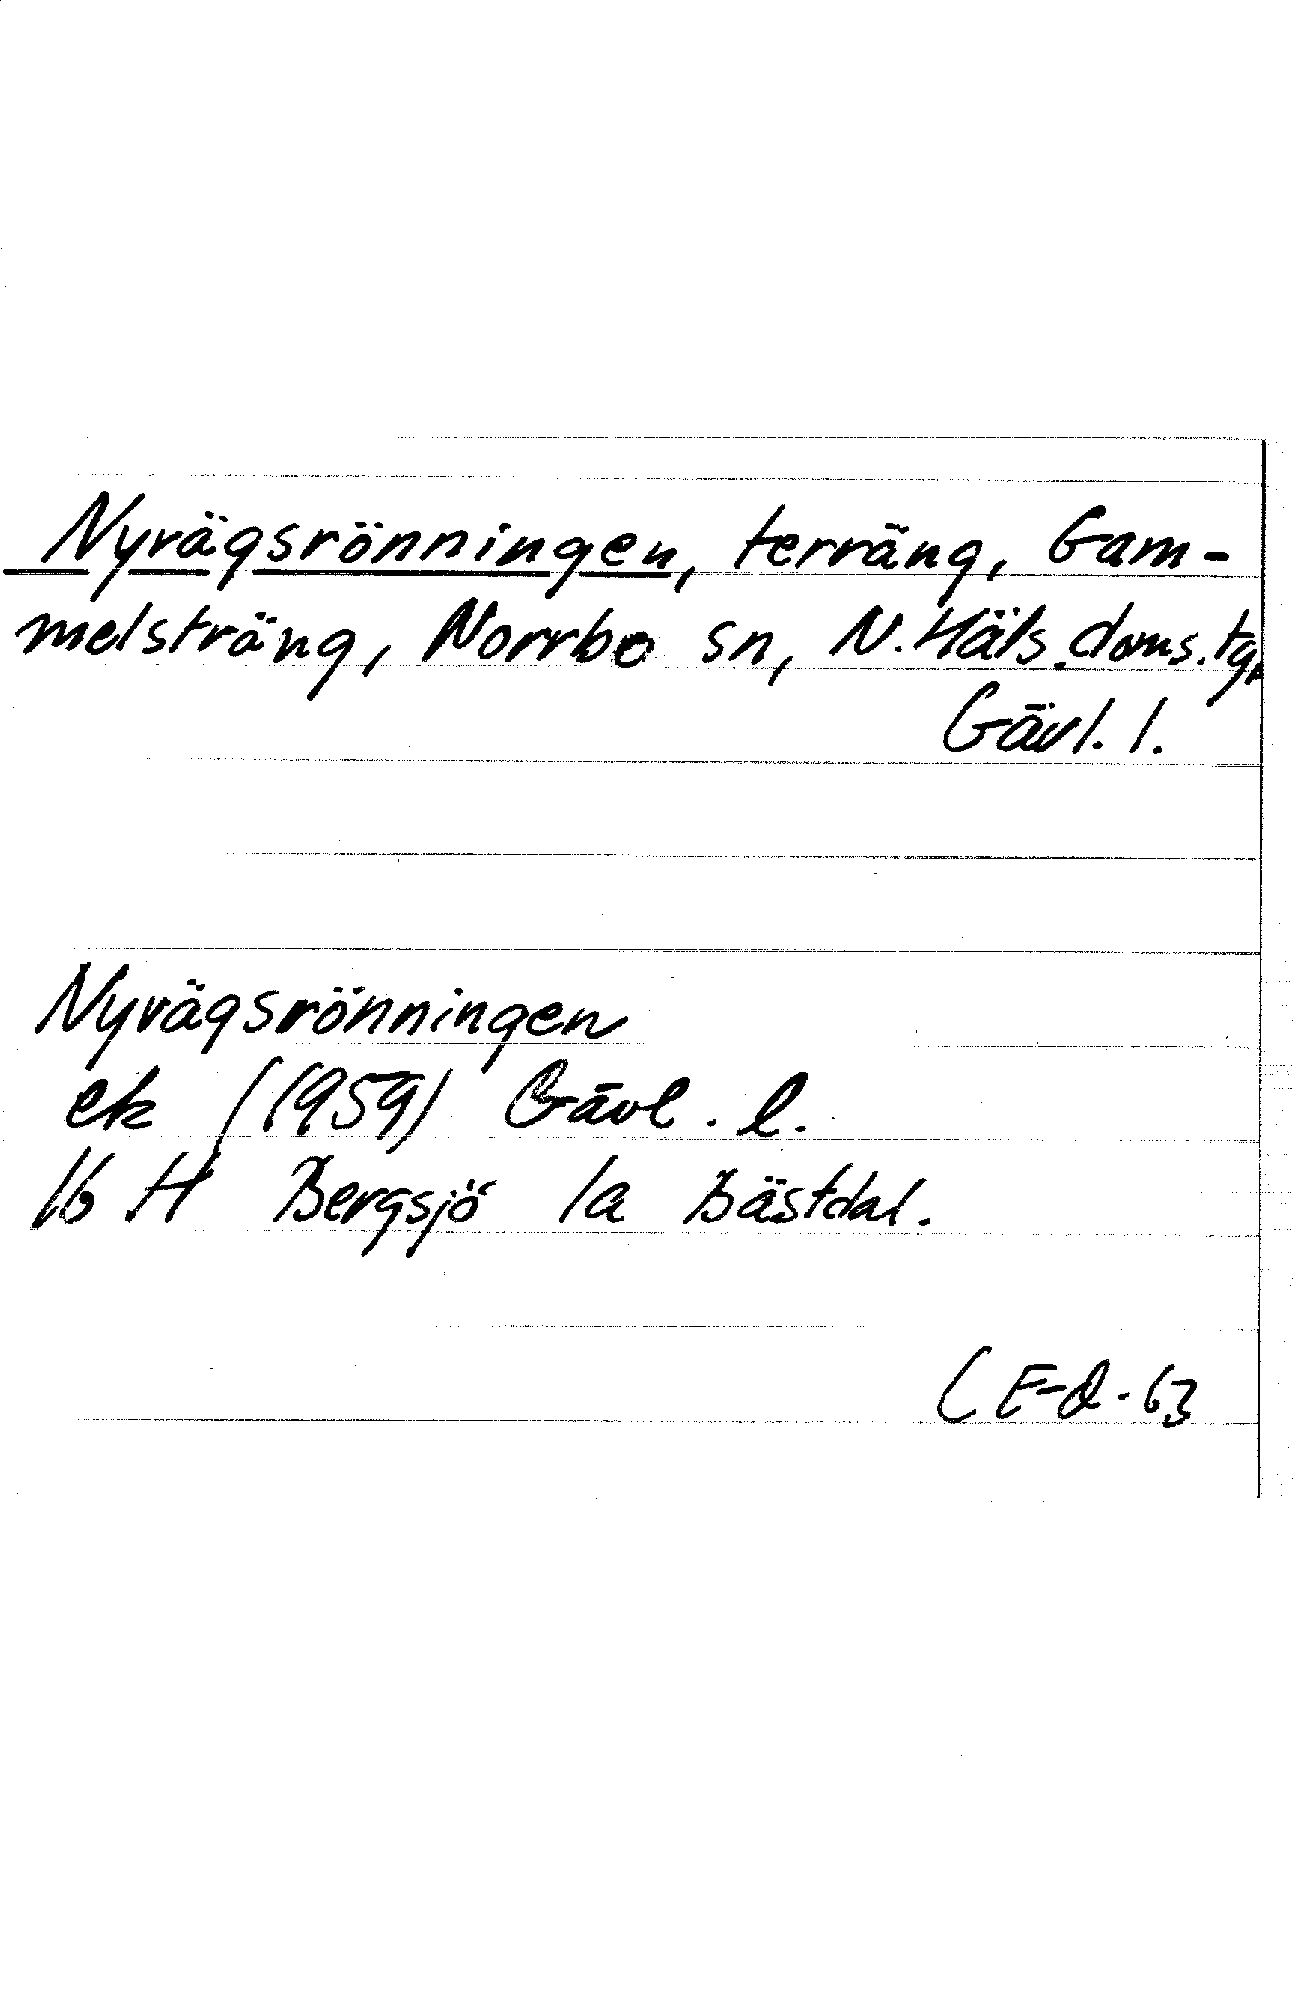 Nyvägsrönningen, terräng, Gam-
melsträng, Norrbo sn, N. Häls. doms. tg,
Gävl. l.
Nyvägsrönningen
ek (1959) Gävl. l.
16 H Bergsjö 1a Bästdal.
CE-D-63